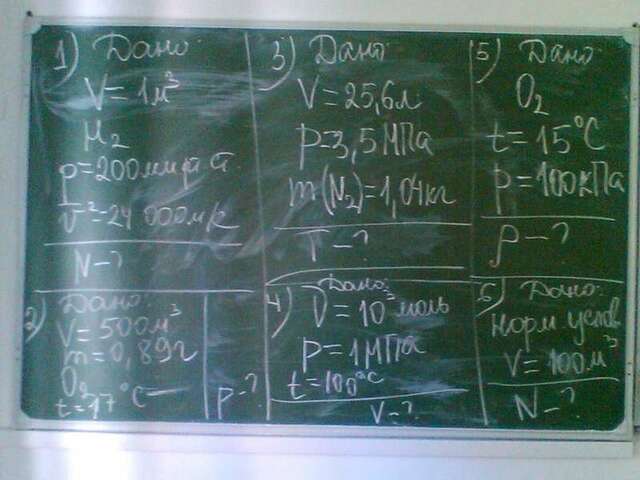 1) Дано:
V = 1м³
H₂
p = 200мм рт
v² = 2400 000м/с
N - ?
2) Дано:
V = 500м³
m = 0,89г
O₂
t = 17°C
p - ?
3) Дано
V = 25,6л
p = 3,5 МПа
m(N₂) = 1,04кг
T - ?
4) Дано:
ν = 10³ моль
p = 1МПа
t = 100°C
V - ?
5) Дано:
O₂
t = 15°C
p = 100кПа
ρ - ?
6) Дано:
Норм услов
V = 100м³
N - ?